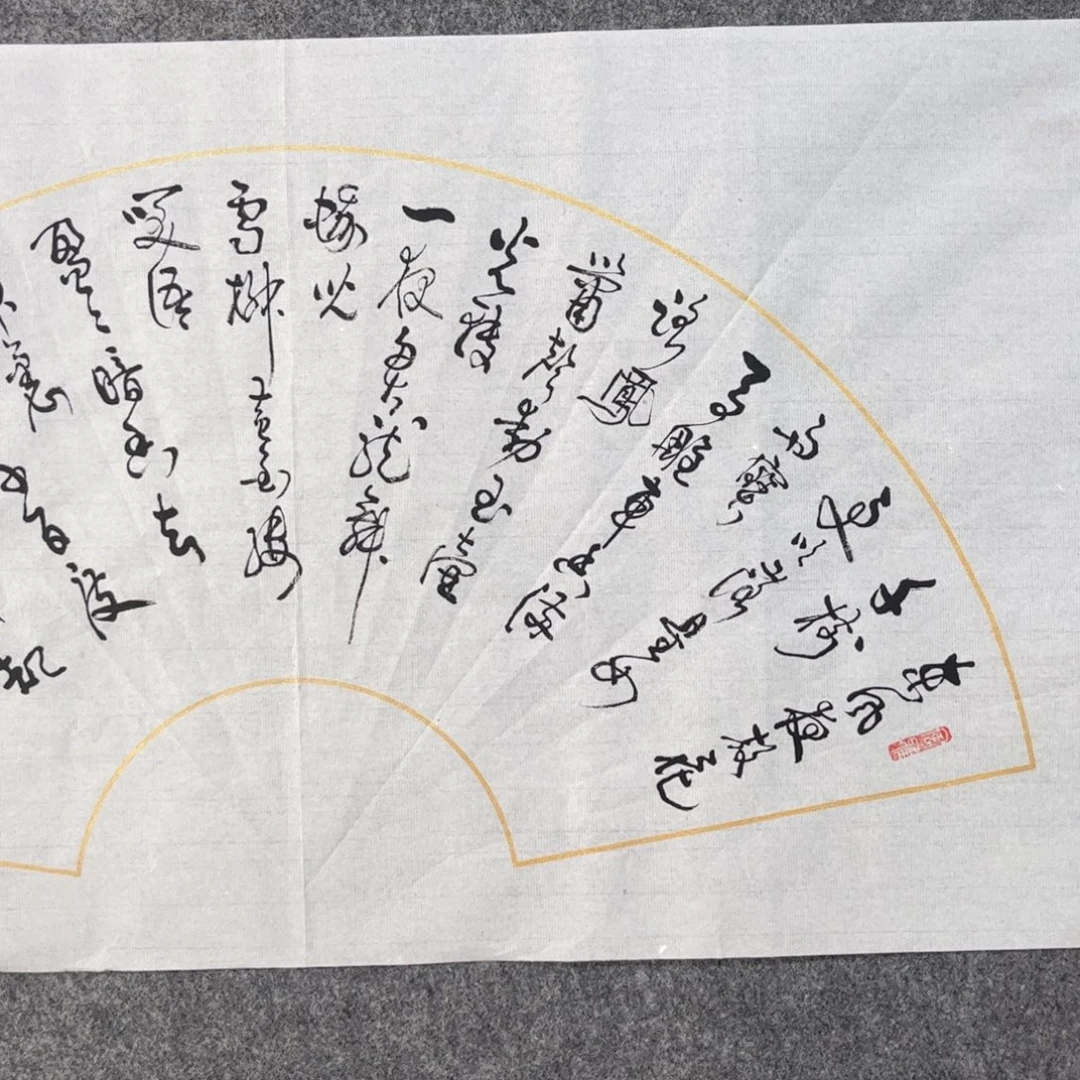 東風夜放花
千樹
更吹落星如
雨寶
馬雕車香滿
路鳳
簫聲動玉壺
光轉
一夜魚龍舞
蛾兒
雪柳黃金縷
笑語
盈〻暗香去
裏
千百度